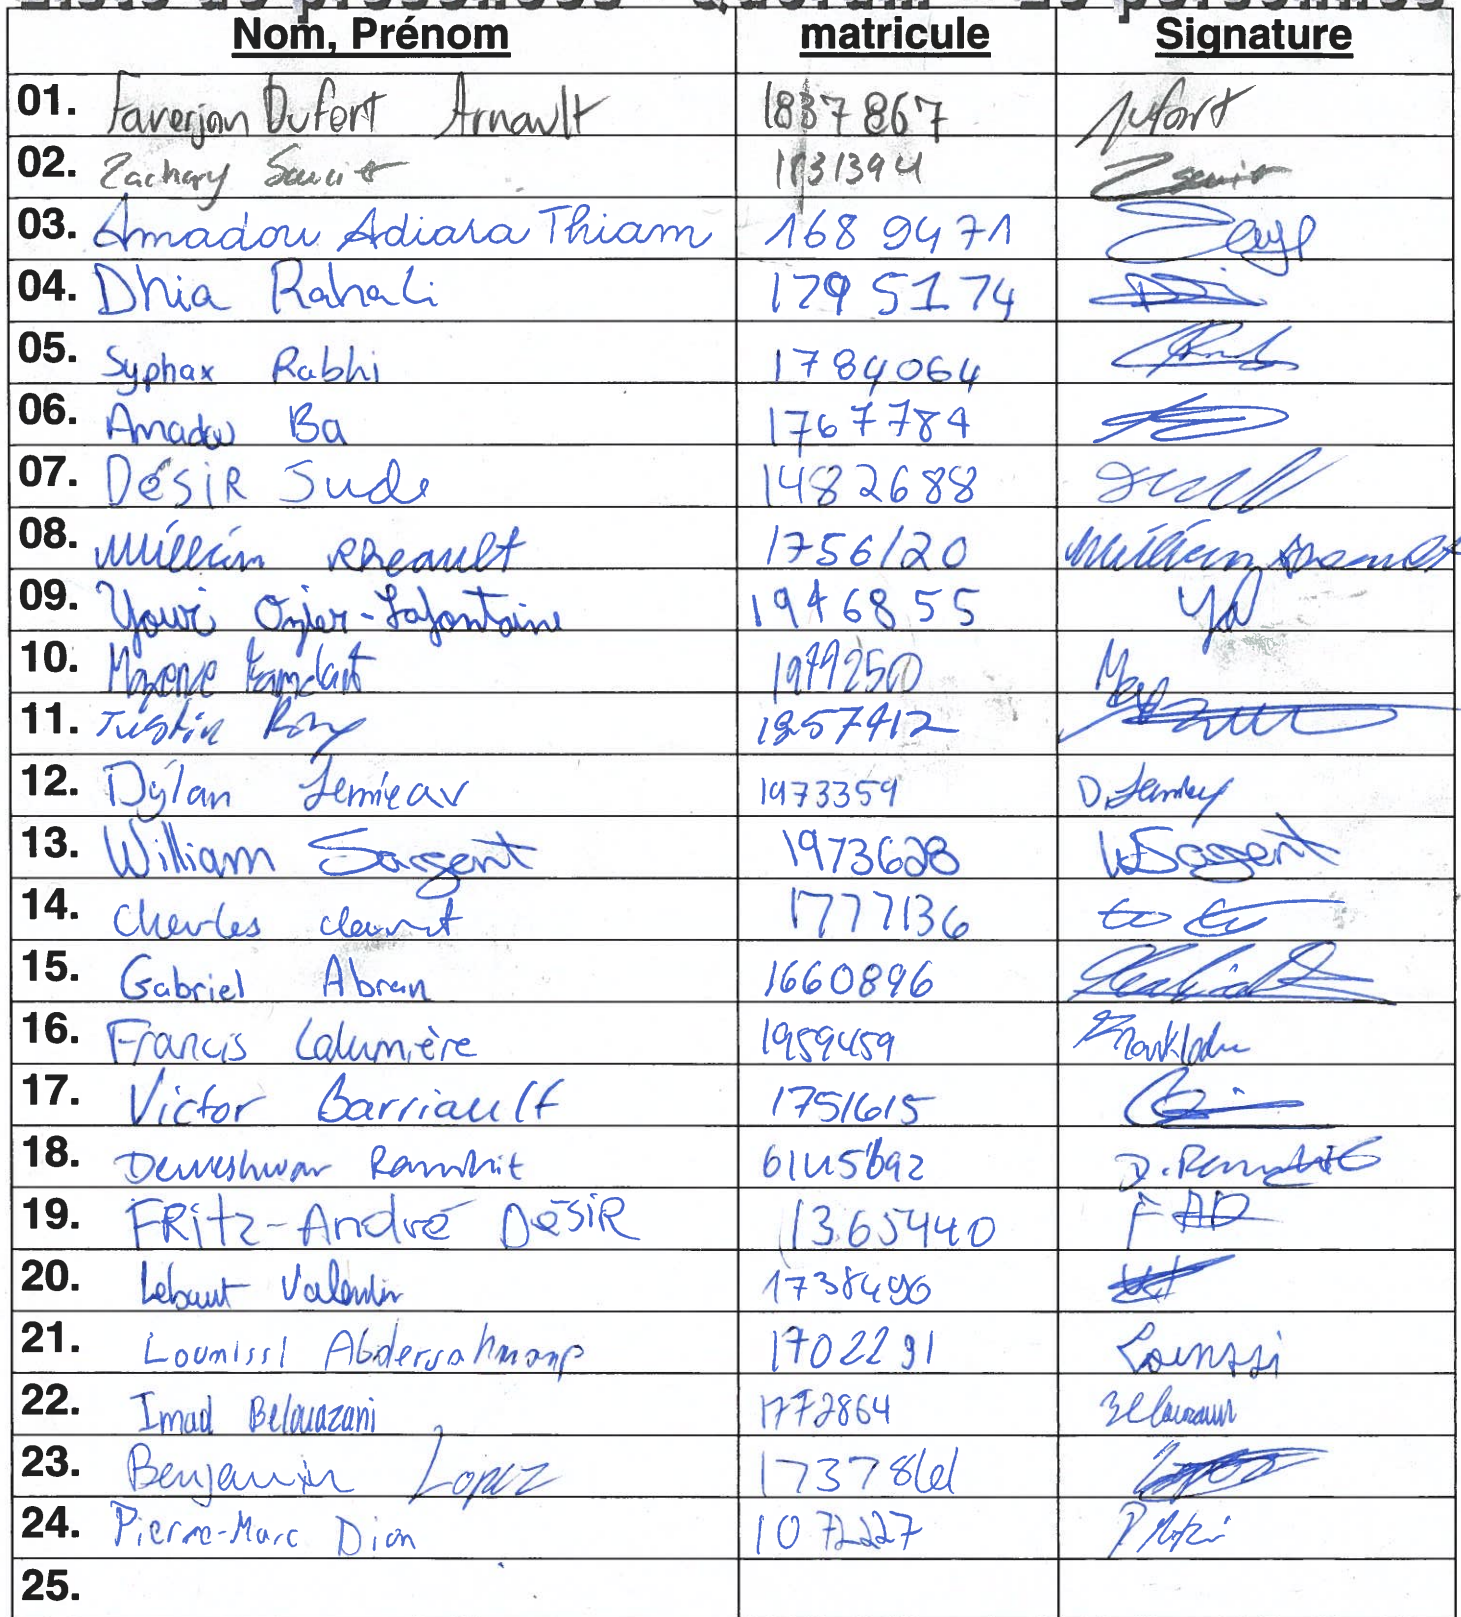 Liste de présences - Quorum - 25 personnes
Nom, Prénom matricule Signature
01. Faverjon Dufort Arnault 1837867 Dufort
02. Zachary 1131394
03. Amadou Adiara Thiam 168 9471
04. Dhia Rahali 1795174
05. Syphax Rabhi 1784064
06. Amadou Ba 1767784
07. DéSiR Jude 1482688
08. William Rheault 1756120 William Rheault
09. Youri Ozier-Lafontaine 1946855
10. 1979250
11. Justin Roy 1957412
12. Dylan 1973359
13. William Sargent 1973628 W Sargent
14. Charles 1777136
15. Gabriel Abran 1660896
16. Francis Lalumière 1959459
17. Victor Barriault 1751615
18. Deweshwar Ramhit 6145692 D. Ramhit
19. FRitz-André DéSiR 1365440 FAD
20. Lebaut Valentin 1738490
21. Lounissi 1702291 Lounissi
22. Imad Belouazani 1772864
23. Benjamin Lopez
24. Pierre-Marc Dion 1072227
25.